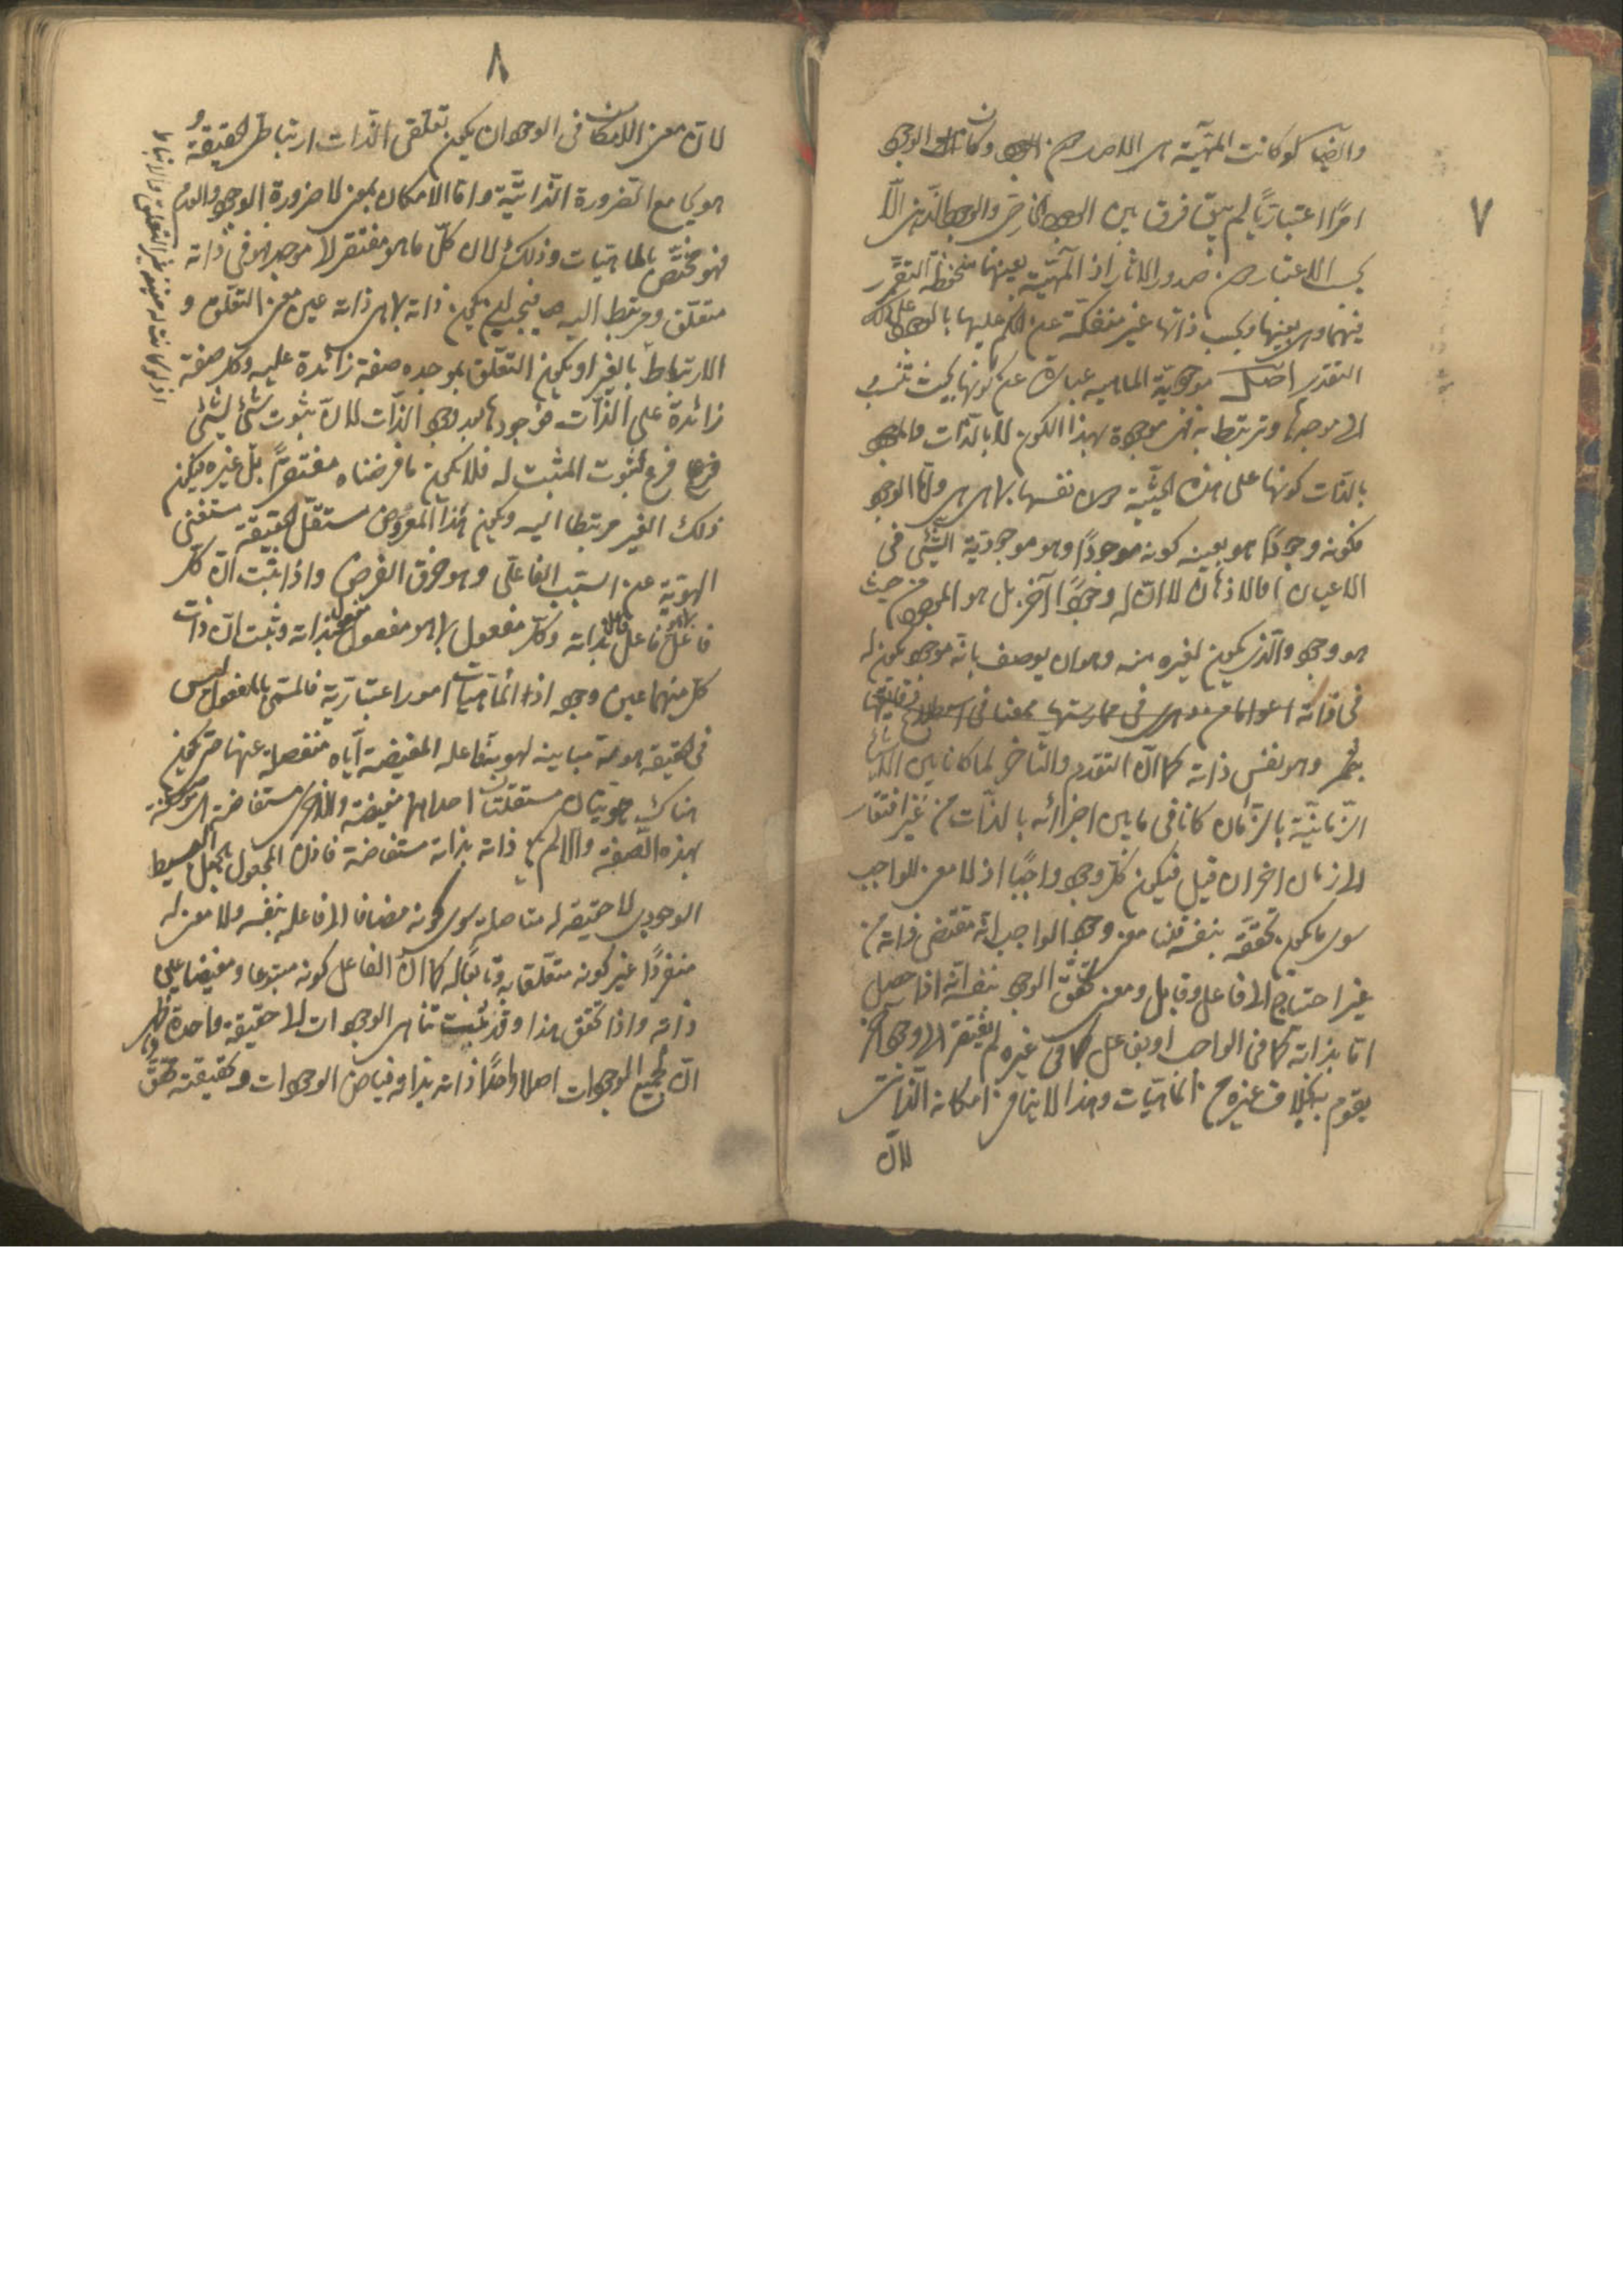 ٧
وايضا لو كانت المهيّة هى الاصل من الوجود وكان الوجود
امرًا اعتباريًا لم يبق فرق بين الوجود الخارجى والوجود الذهنى الّا
بحسب الاعتبار من صدور الآثار اذ المهيّة بعينها منحفظة التقرر
فيهما وهى بعينها وبحسب ذاتها غير منفكّة عن الحكم عليها بالوجود على ذلك
التقدير اصل موجوديّة الماهيه عبارة عن كونها بحيث تنسب
الى موجدها وترتبط به فهى موجودة بهذا الكون لا بالذات والموجود
بالذات كونها على هذه الحيثية لا نفسها بما هى هى وامّا الوجود
فكونه وجودًا هو بعينه كونه موجودًا وهو موجودية الشئ فى
الاعيان او الاذهان لا انّ له وجودًا آخر بل هو الموجود من حيث
هو وجود والّذى يكون لغيره منه وهو ان يوصف بانّه موجود يكون له
فى ذاته
وهو نفس ذاته كما انّ التقدم والتأخر لما كانا بين الاشياء
الزّمانيّة بالزّمان كانا فى ما بين اجزائه بالذّات من غير افتقار
الى زمان اخر ان قيل فيكون كلّ وجود واجبًا اذ لا معنى للواجب
سوى ما يكون تحققه بنفسه قلنا معنى وجود الواجب انّه مقتضى ذاته من
غير احتياج الى فاعل وقابل ومعنى تحقّق الوجود بنفسه انّه اذا حصل
امّا بذاته كما فى الواجب او بفاعل كما فى غيره لم يفتقر الى وجود آخر
يقوم به بخلاف غيره من الماهيّات وهذا لا ينافى امكانه الذاتى
لانّ
٨
لانّ معنى الامكان فى الوجود ان يكون تعلّقى الذّات ارتباطى الحقيقة و
هو يجامع الضرورة الذّاتيّة وامّا الامكان بمعنى لا ضرورة الوجود والعدم
فهو مختصّ بالماهيّات وذلك لان كلّ ما هو مفتقر الى موجد فهو فى ذاته
متعلّق ومرتبط اليه فيجب ان يكون ذاته بما هى ذاته عين معنى التعلّق و
الارتباط بالغير او يكون التعلّق بموجده صفة زائدة عليه وكل صفة
زائدة على الذّات فوجودها بعد وجود الذّات لانّ ثبوت شئ لشئ
فرع لثبوت المثبت له فلا يكون ما فرضناه مفتقرًا بل غيره فيكون
ذلك الغير مرتبطا اليه ويكون هذا المعروض مستقلّ الحقيقة مستغنى
الهويّة عن السّبب الفاعلى وهو خرق الفرض واذا ثبت انّ كل
فاعل بما هو فاعل فاعل بذاته وكل مفعول بما هو مفعول مفعول بذاته وثبت انّ ذات
كل منهما عين وجوده اذ الماهيات امور اعتباريّة فالمسمّى بالمفعول ليس
فى الحقيقة هويّة مباينة لهوية فاعله المفيضة ايّاه منفصلة عنها حتى يكون
هناك هويّتان مستقلّتان احداهما مفيضة والاخرى مستفاضة اى موصوفة
بهذه الصّفة والّا لم يكن ذاته بذاته مستفاضة فاذن المجعول بالجعل البسيط
الوجودى لا حقيقه له متاصلة سوى كونه مضافا الى فاعله بنفسه ولا معنى له
منفردًا غير كونه متعلّقا به وتابعا له كما انّ الفاعل كونه متبوعا ومفيضا عين
ذاته واذا تحقّق هذا وقد ثبت تناهى الوجودات الى حقيقة واحدة ظهر
انّ لجميع الموجودات اصلا واحدًا ذاته بذاته فياض الوجودات وبحقيقته محقّق